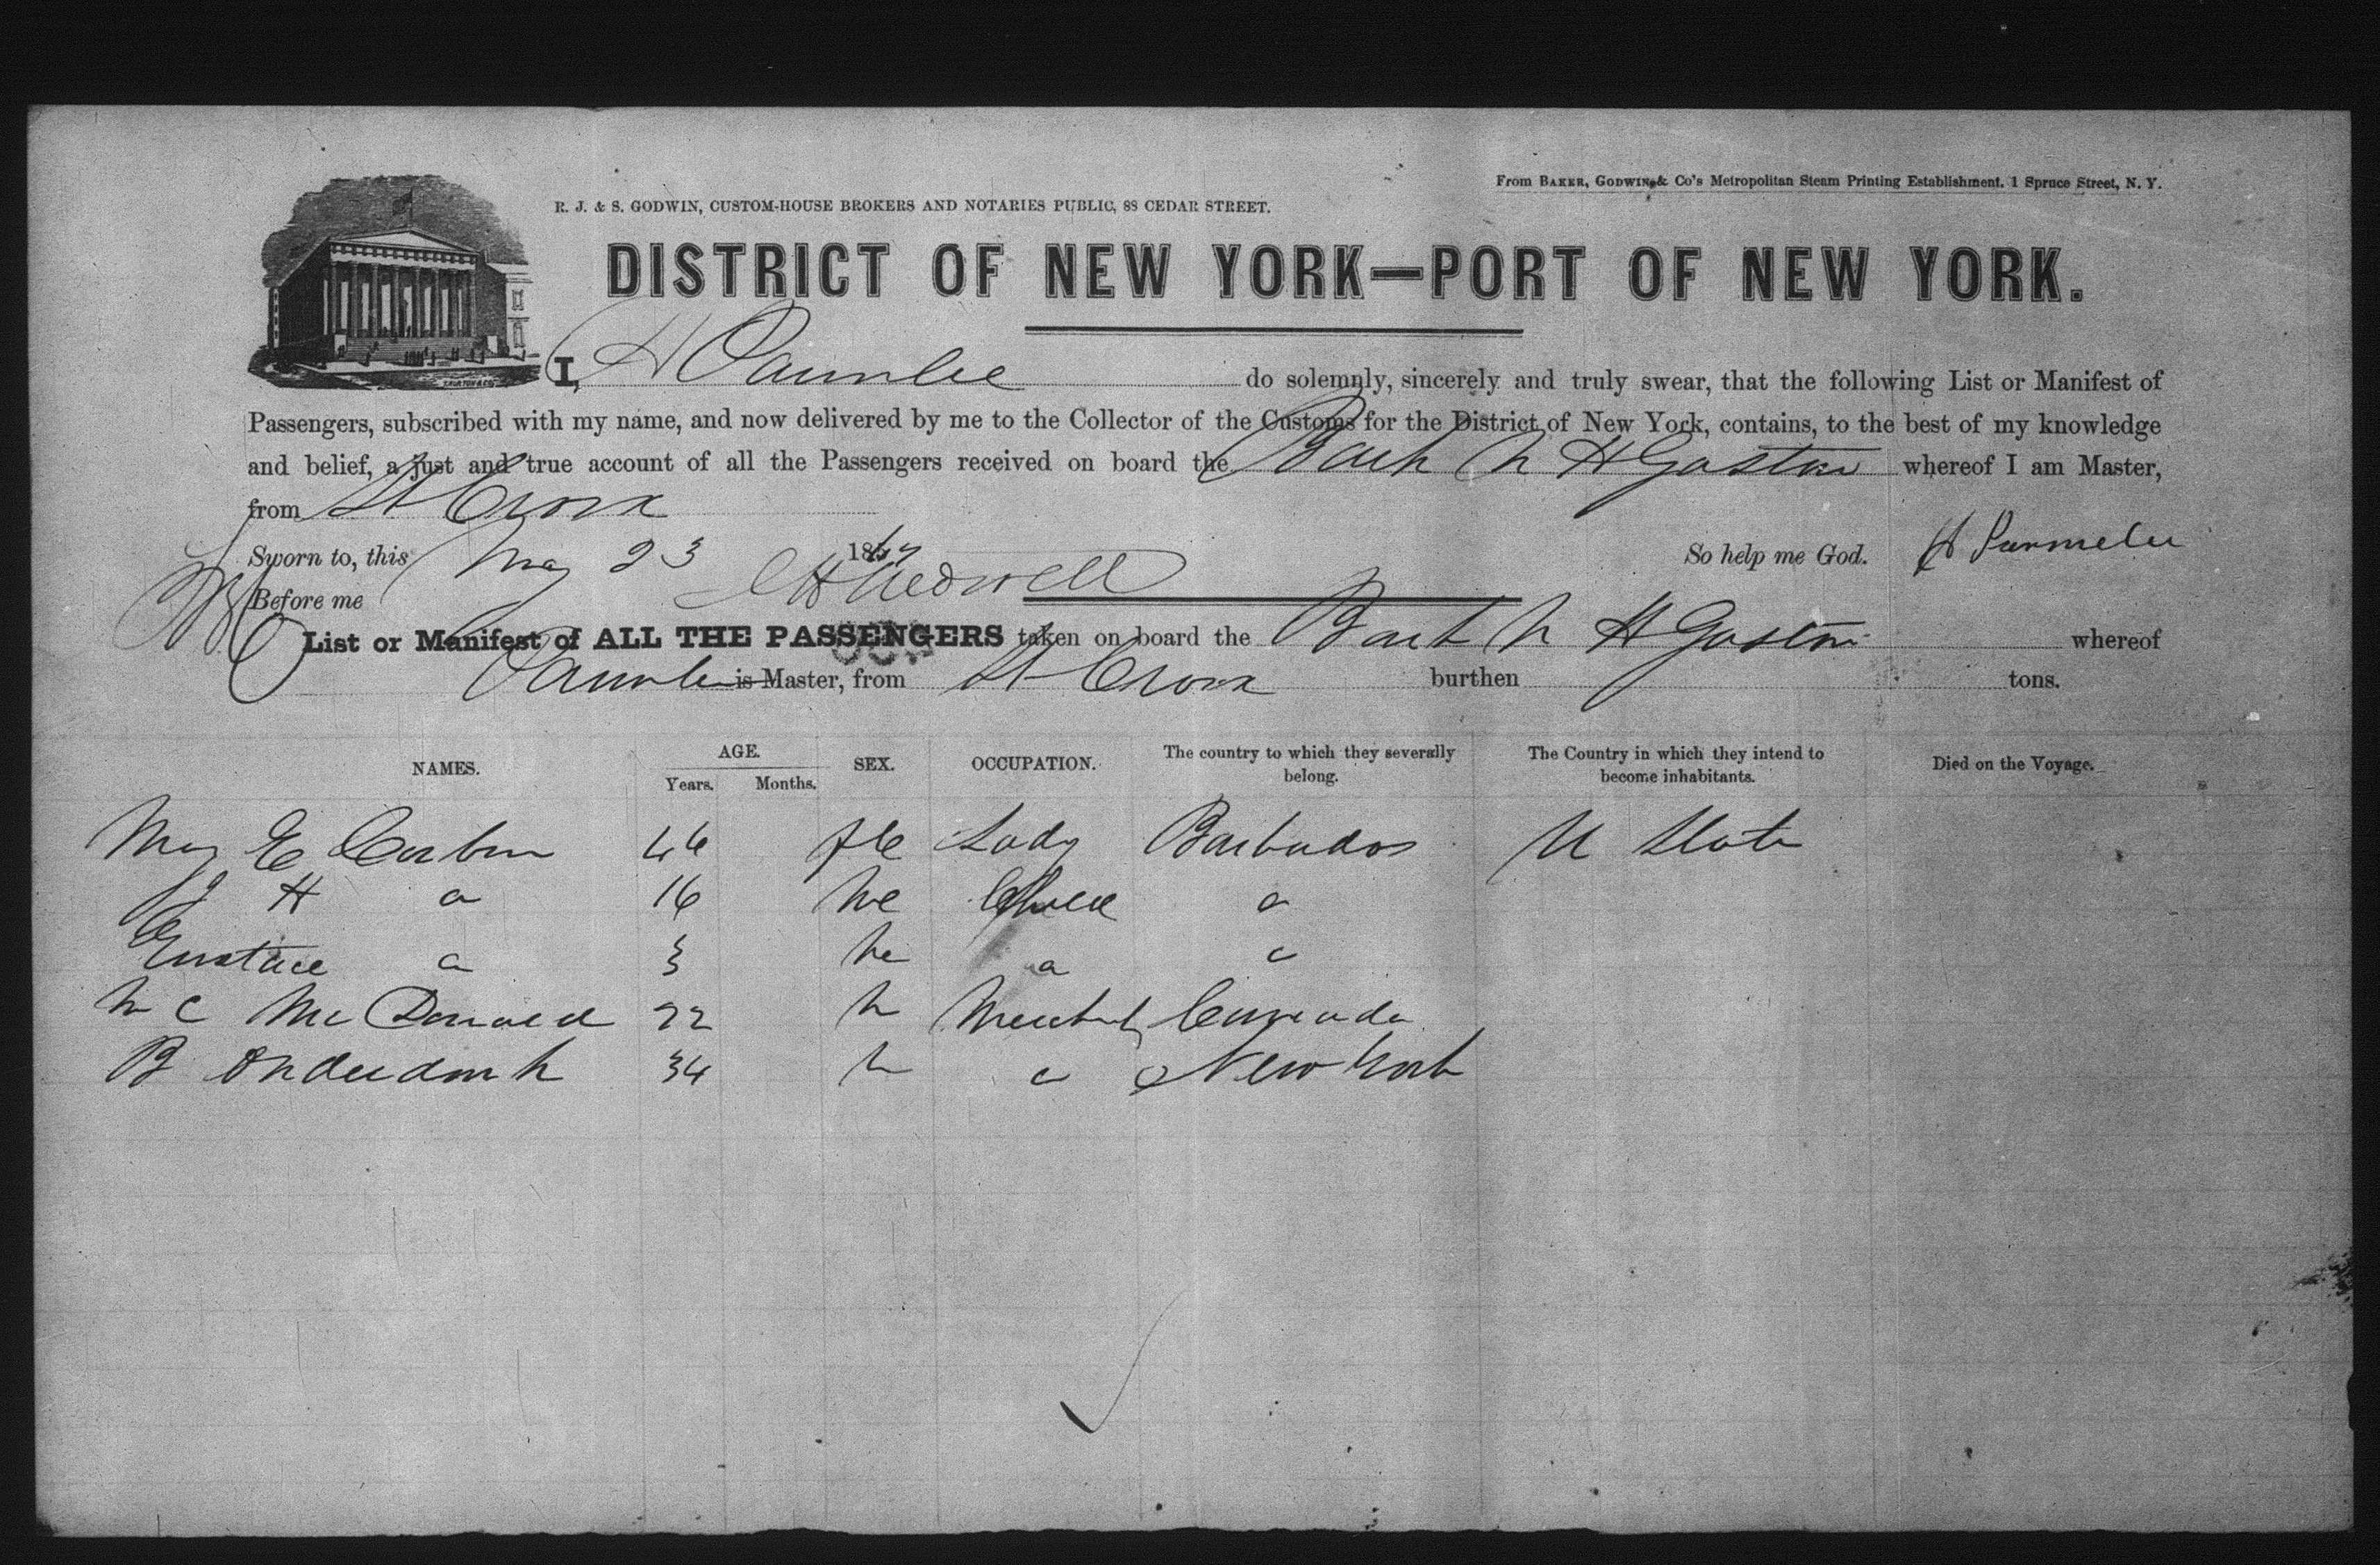 From BAKER, GODWIN & Co's Metropolitan Steam Printing Establishment, 1 Spruce Street, N. Y.
R. J. & S. GODWIN, CUSTOM-HOUSE BROKERS AND NOTARIES PUBLIC, 88 CEDAR STREET.
DISTRICT OF NEW YORK—PORT OF NEW YORK.
I, H do solemnly, sincerely and truly swear, that the following List or Manifest of
Passengers, subscribed with my name, and now delivered by me to the Collector of the Customs for the District of New York, contains, to the best of my knowledge
and belief, a just and true account of all the Passengers received on board the Bark N H Gaston whereof I am Master,
from St Croix
Sworn to, this May 23 18 So help me God. H Parmelee
Before me
List or Manifest of ALL THE PASSENGERS taken on board the Bark N H Gaston whereof
is Master, from St Croix burthen tons.
NAMES. AGE. SEX. OCCUPATION. The country to which they severally belong. The Country in which they intend to become inhabitants. Died on the Voyage.
Years. Months.
E 46 Lady Barbados U State
J H 16 Child
Eustace 3
C Mc Donald 22
B Onderdonk 34 New York